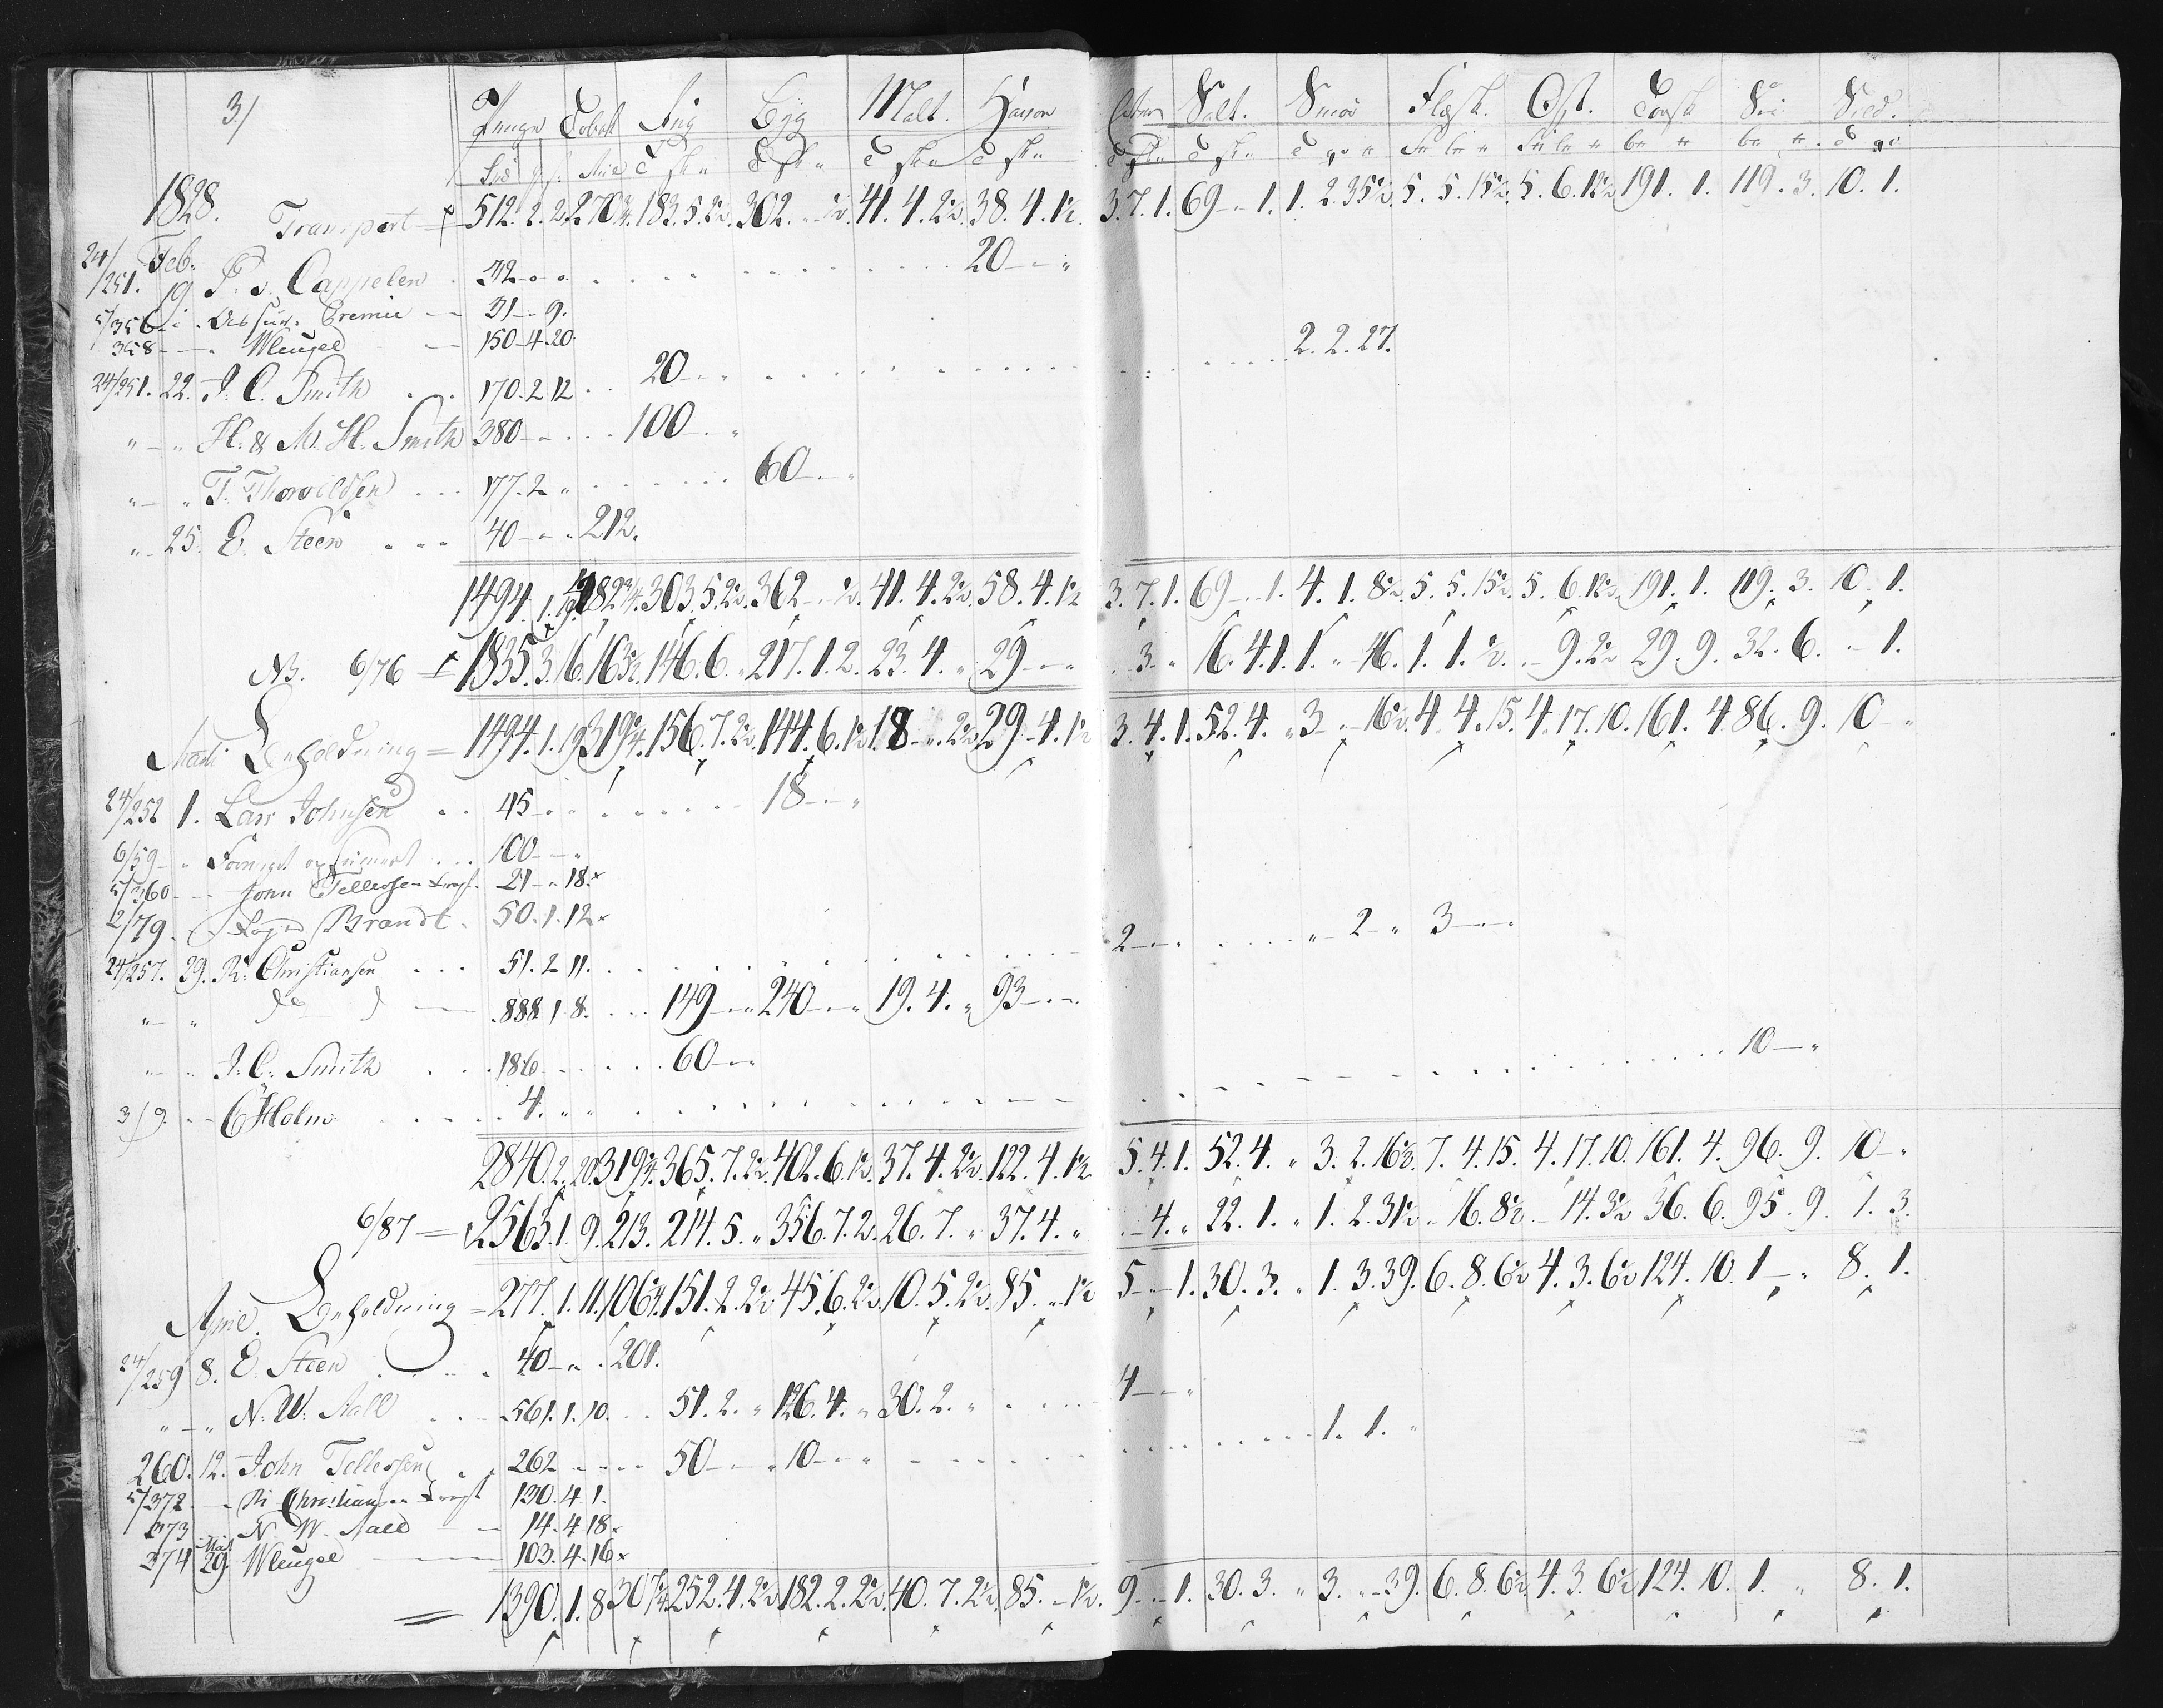 3/ Penge Tobak Rug Byg Malt. Havre Salt. Smør Flesk. Ost. Torsk Sei Sild.
1828. Transport 512. 2. 2. 270¾. 183. 5. 2½. 302. „ ½. 41. 4. 2½. 38. 4. 1½. 3. 7. 1. 69 „ 1. 1. 2. 35½. 5. 5. 15½. 5. 6. 12½ 191. 1. 119. 3. 10. 1.
24/251. Feb. 19 P. v. Cappelen 32 „ „ 20 „ „
5/356 „ Assur. Premie 31 „ 9.
358 „ Wleugel 150 4. 20.
24/251. 22. J. C. Smith 170. 2. 12 20 „ „ 2. 2. 27.
„ „ H. & M. H. Smith 380 „ „ 100 „ „
„ „ T. Thorvildsen 177. 2 „ 60 „ „
„ 25. E. Steen 40 „ „ 212.
1494. 1. 19. 482¾. 303. 5. 2½. 362 „ ½. 41. 4. 2½. 58. 4. 1½ 3. 7. 1. 69 „ 1. 4. 1. 8½. 5. 5. 15½. 5. 6. 12½. 191. 1. 119. 3. 10. 1.
N3. 6/76 1835. 3. 6. 163½. 146. 6. „ 217. 1. 2. 23. 4. „ 29 „ „ 3 „ 16. 4. 1. 1. „ 16. 1. 1. ½. „ 9. 2½ 29. 9. 32. 6. „ 1.
Marti Beholdning = 1494. 1. 19 319¼. 156. 7. 2½. 144. 6. 1½. 18 „ 2½ 29. 4. 1½ 3. 4. 1. 52. 4. „ 3 „ 16½. 4. 4. 15. 4. 17. 10. 161. 4. 86. 9. 10 „
24/252 1. Lars Johnsen 45 „ „ 18 „ „
6/59 „ 100 „ „
5/360 „ John Tellefsen Fragt. 21 „ 18.
2/79. Brandt. 50. 1. 12
24/257. 29. R. Christiansen 51. 2. 11. 2 „ „ „ 2 „ 3 „ „
„ „ do do 888. 1. 8. 149 „ „ 240 „ „ 19. 4. „ 93 „ „
„ „ J. C. Smith 186 60 „ „
3/9. „ C Holm 4. „ „ 10 „
2840. 2. 20. 319¼. 365. 7. 2½. 402. 6. 1½. 37. 4. 2½. 122. 4. 1½. 5. 4. 1. 52. 4. „ 3. 2. 16½. 7. 4. 15. 4. 17. 10. 161. 4. 96. 9. 10 „
6/87 = 2563. 1. 9. 213. 214. 5. „ 356. 7. 2. 26. 7. „ 37. 4. „ 4. „ 22. 1. „ 1. 2. 31½. „ 16. 8½. „ 14. 3½ 36. 6. 95. 9. 1. 3.
April. Beholdning = 277. 1. 11. 106¼. 151. 2. 2½ 45. 6. 2½. 10. 5. 2½. 85. „ 1½ 5 „ 1. 30. 3. „ 1. 3. 39. 6. 8. 6½ 4. 3. 6½ 124. 10. 1 „ 8. 1.
24/259 8. E. Steen 40 „ „ 201.
„ „ N. W. Aall 561. 1. 10. 51. 2. „ 126. 4. „ 30. 2. „ 4 „ „
260. 12. John Tellefsen 262 50 „ „ 10 „ „ 1. 1. „
5/372 „ R Christiansen Fragt 130. 4. 1.
373 „ N. W. Aall 14. 4. 18.
374 Mai 29. Wleugel 103. 4. 16
1390. 1. 8 307¼. 252. 4. 2½. 182. 2. 2½. 40. 7. 2½. 85. „ 1½. 9 „ 1. 30. 3. „ 3. „ 39. 6. 8. 6½. 4. 3. 6½ 124. 10. 1. „ 8. 1.